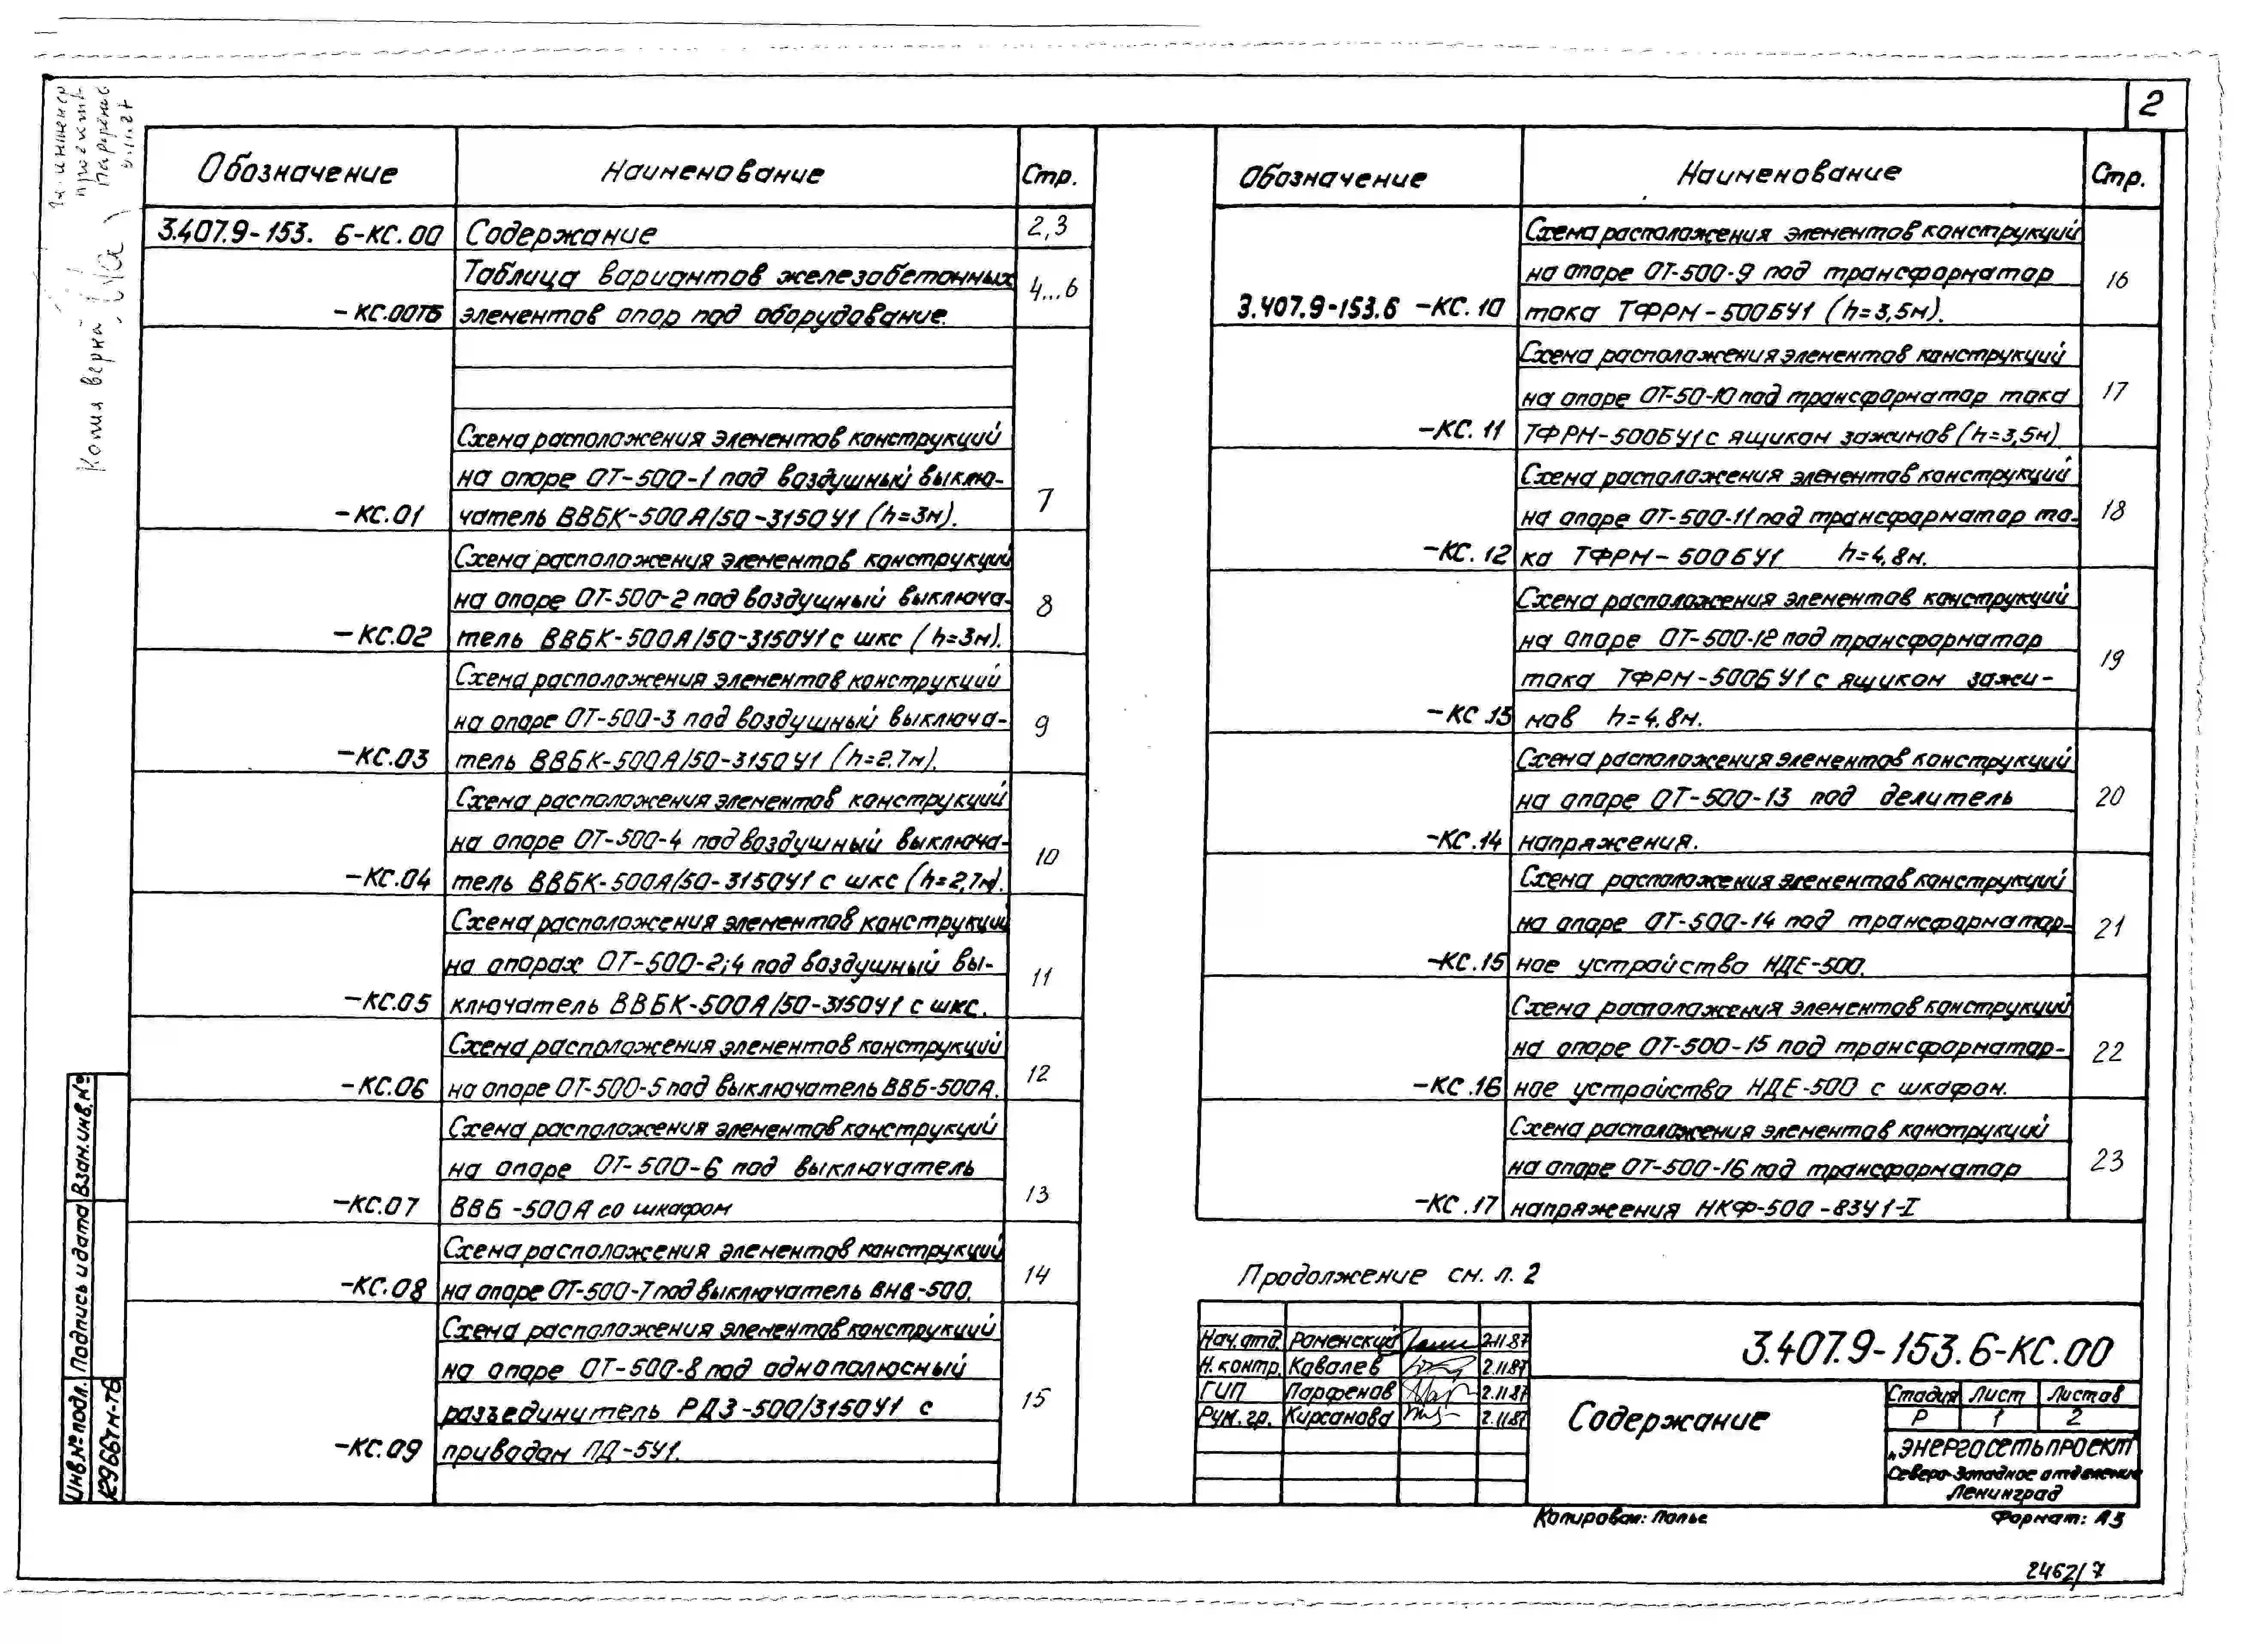 2
Гл. инженер
проекта
Копия верна
Обозначение
Наименование
Стр.
3.407.9-153. 6-КС.00
Содержание
2,3
Таблица вариантов железобетонных
-КС.00ТБ
элементов опор под оборудование.
4...6
Схема расположения элементов конструкций
на опоре ОТ-500-1 под воздушный выклю-
-КС.01
чатель ВВБК-500А/50-3150У1 (h=3м).
7
Схема расположения элементов конструкций
на опоре ОТ-500-2 под воздушный выключа-
-КС.02
тель ВВБК-500А/50-3150У1 с шкс (h=3м).
8
Схема расположения элементов конструкций
на опоре ОТ-500-3 под воздушный выключа-
-КС.03
тель ВВБК-500А/50-3150У1 (h=2.7м).
9
Схема расположения элементов конструкций
на опоре ОТ-500-4 под воздушный выключа-
-КС.04
тель ВВБК-500А/50-3150У1 с шкс (h=2,7м).
10
Схема расположения элементов конструкций
на опорах ОТ-500-2;4 под воздушный вы-
-КС.05
ключатель ВВБК-500А/50-3150У1 с шкс.
11
Схема расположения элементов конструкций
-КС.06
на опоре ОТ-500-5 под выключатель ВВБ-500А.
12
Схема расположения элементов конструкций
на опоре ОТ-500-6 под выключатель
-КС.07
ВВБ-500А со шкафом
13
Схема расположения элементов конструкций
-КС.08
на опоре ОТ-500-7 под выключатель ВНВ-500.
14
Схема расположения элементов конструкций
на опоре ОТ-500-8 под однополюсный
разъединитель РДЗ-500/3150У1 с
-КС.09
приводом ПД-5У1.
15
Обозначение
Наименование
Стр.
Схема расположения элементов конструкций
на опоре ОТ-500-9 под трансформатор
3.407.9-153.6 -КС.10
тока ТФРМ-500БУ1 (h=3,5м).
16
Схема расположения элементов конструкций
на опоре ОТ-50-10 под трансформатор тока
-КС.11
ТФРМ-500БУ1 с ящиком зажимов (h=3,5м)
17
Схема расположения элементов конструкций
на опоре ОТ-500-11 под трансформатор то-
-КС.12
ка ТФРМ-500БУ1 h=4,8м.
18
Схема расположения элементов конструкций
на опоре ОТ-500-12 под трансформатор
тока ТФРМ-500БУ1 с ящиком зажи-
-КС.13
мов h=4.8м.
19
Схема расположения элементов конструкций
на опоре ОТ-500-13 под делитель
-КС.14
напряжения.
20
Схема расположения элементов конструкций
на опоре ОТ-500-14 под трансформатор-
-КС.15
ное устройство НДЕ-500.
21
Схема расположения элементов конструкций
на опоре ОТ-500-15 под трансформатор-
-КС.16
ное устройство НДЕ-500 с шкафом.
22
Схема расположения элементов конструкций
на опоре ОТ-500-16 под трансформатор
-КС.17
напряжения НКФ-500-83У1-I
23
Продолжение см. л. 2
Нач. отд. Роменский 2.11.87
Н. контр. Ковалев 2.11.87
ГИП Парфенов 2.11.87
Рук. гр. Кирсанова 2.11.87
3.407.9-153.6-КС.00
Содержание
Стадия Лист Листов
Р 1 2
„ЭНЕРГОСЕТЬПРОЕКТ"
Северо-Западное отделение
Ленинград
Копировал: Полье
Формат: А3
2462/7
Взам.инв.№
Подпись и дата
Инв.№ подл.